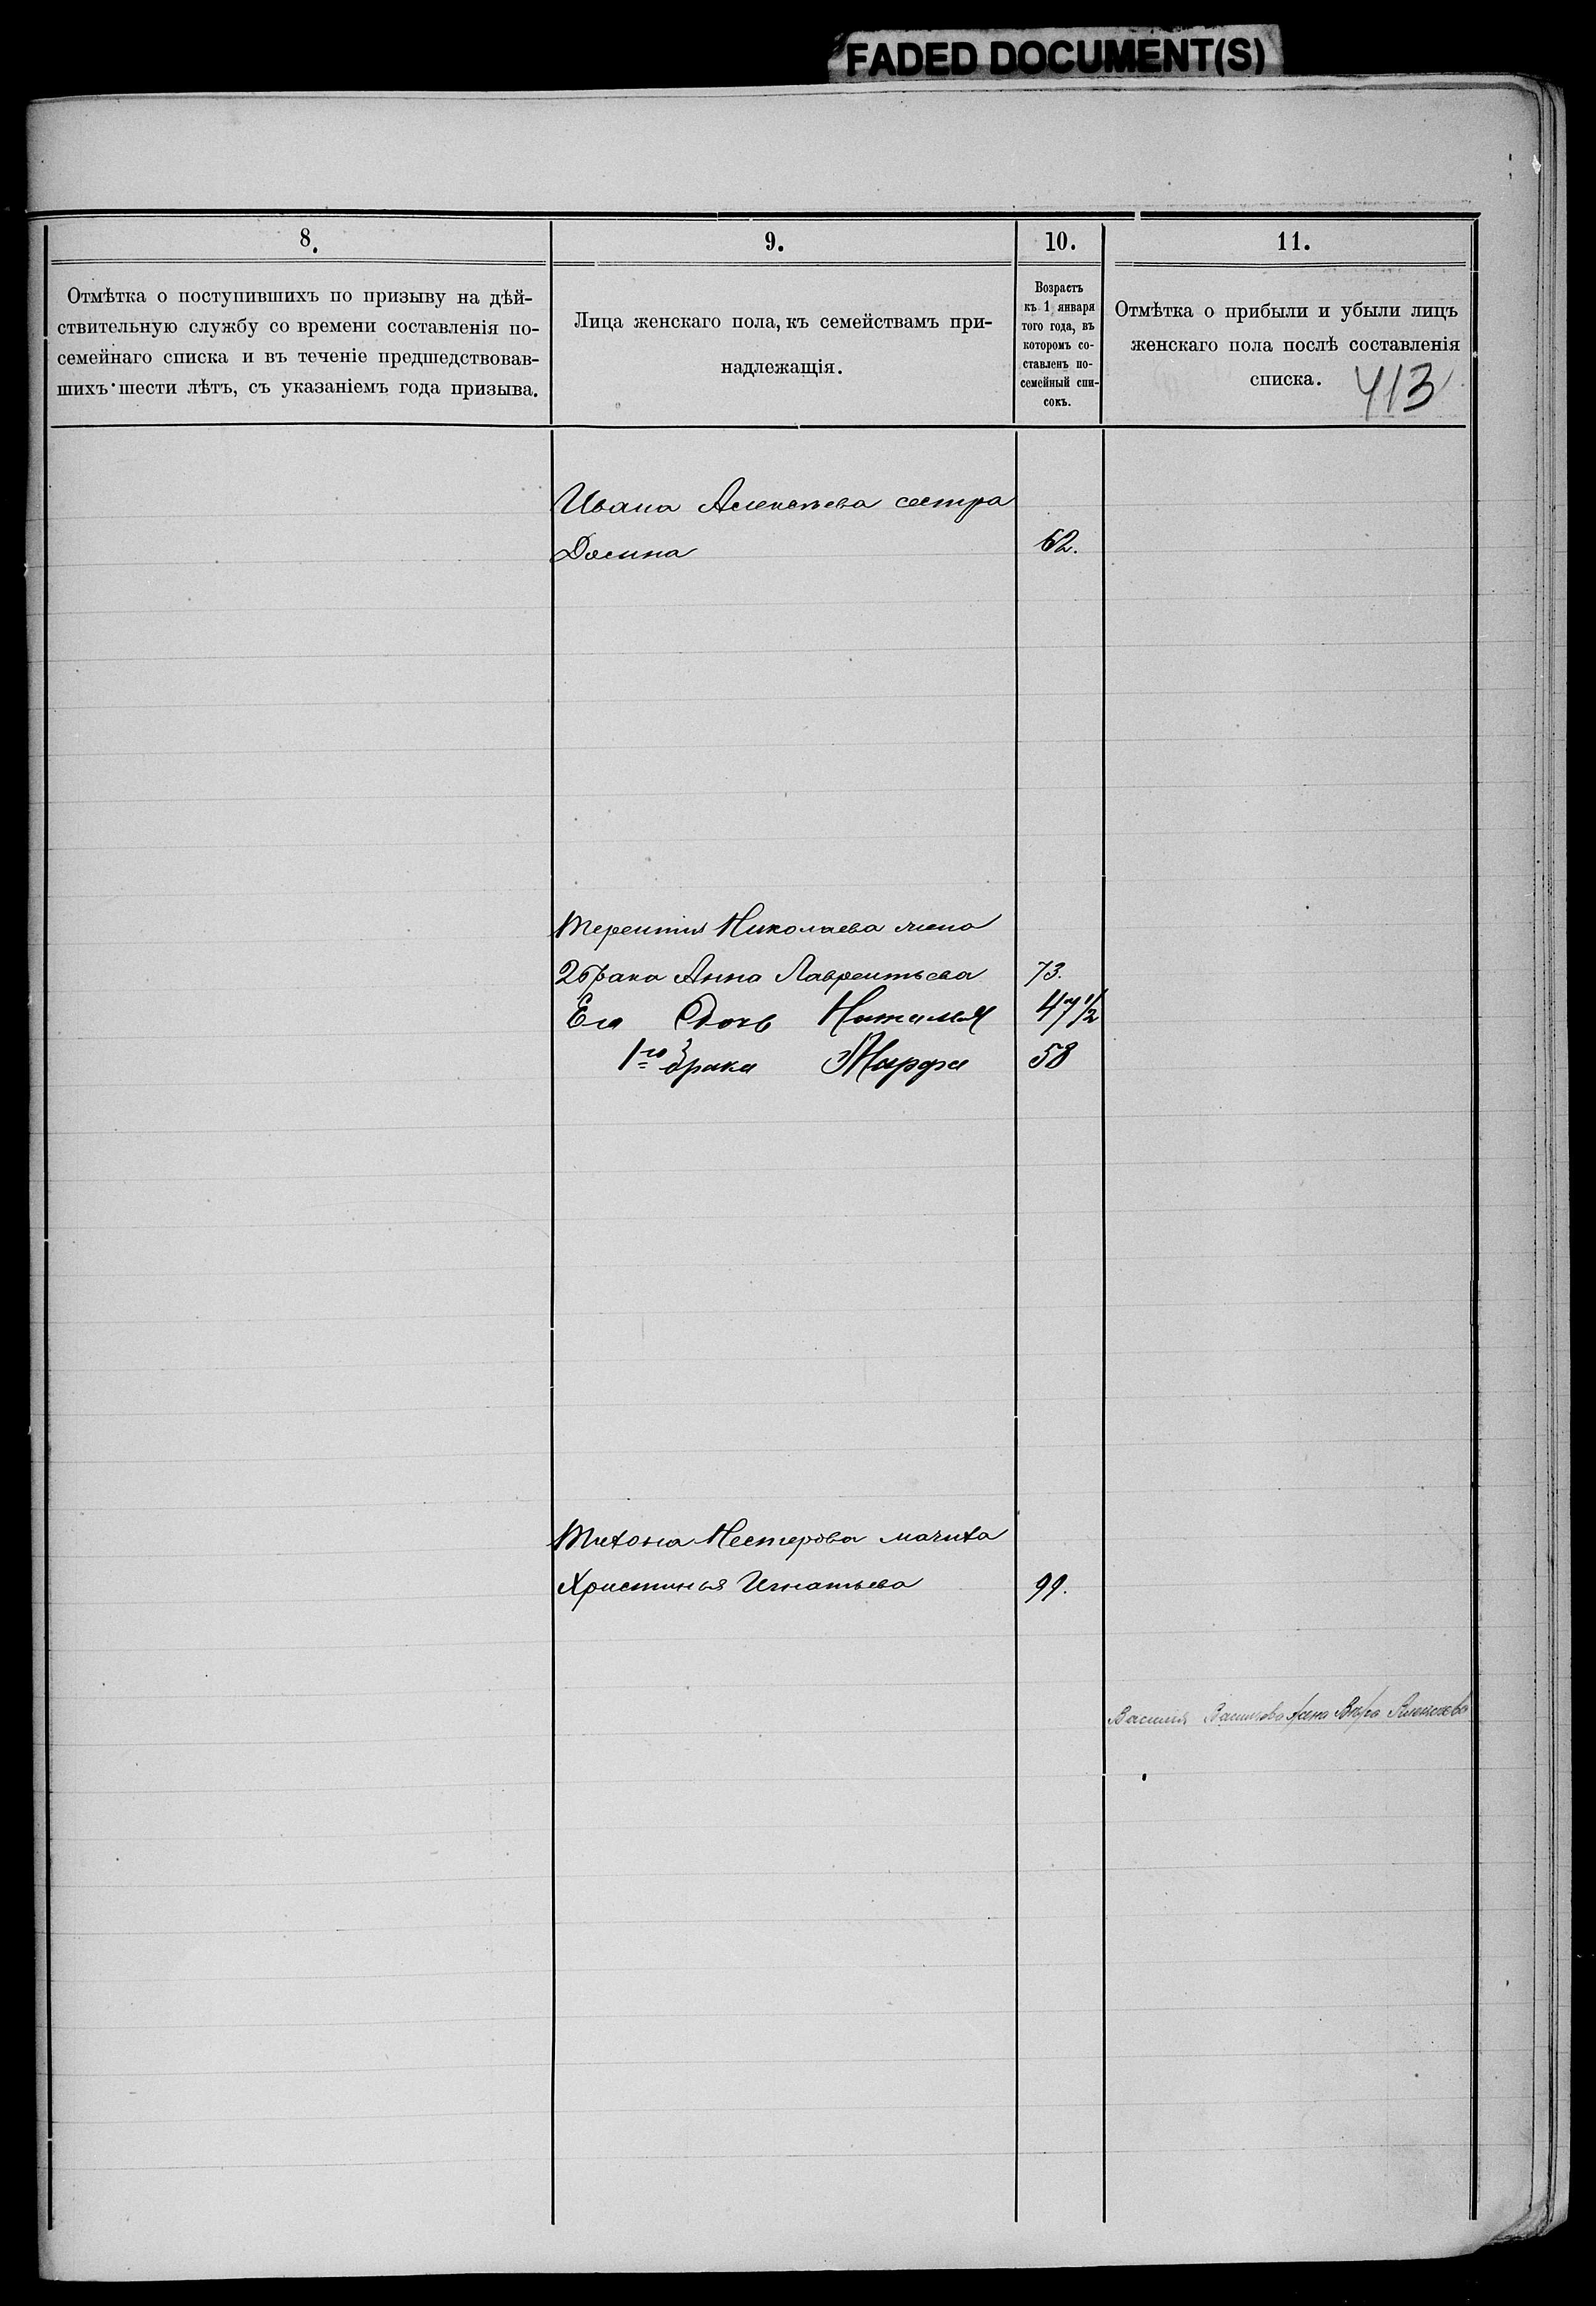 FADED DOCUMENT(S)
8.
Отмѣтка о поступившихъ по призыву на дѣй-
ствительную службу со времени составленія по-
семейнаго списка и въ теченіе предшедствовав-
шихъ шести лѣтъ, съ указаніемъ года призыва.
9.
Лица женскаго пола, къ семействамъ при-
надлежащія.
10.
Возрастъ
къ 1 января
того года, въ
которомъ со-
ставленъ по-
семейный спи-
сокъ.
11.
Отмѣтка о прибыли и убыли лицъ
женскаго пола послѣ составленія
списка.
413
Ивана Алексѣева сестра
Домна 62.
Терентія Николаева жена
2 брака Анна Лаврентьева 73.
Его дочь Наталья 47 1/2
1го брака Марфа 58
Тихона Нестерова мачиха
Христинья Игнатьева 99.
Василія жена Вѣра